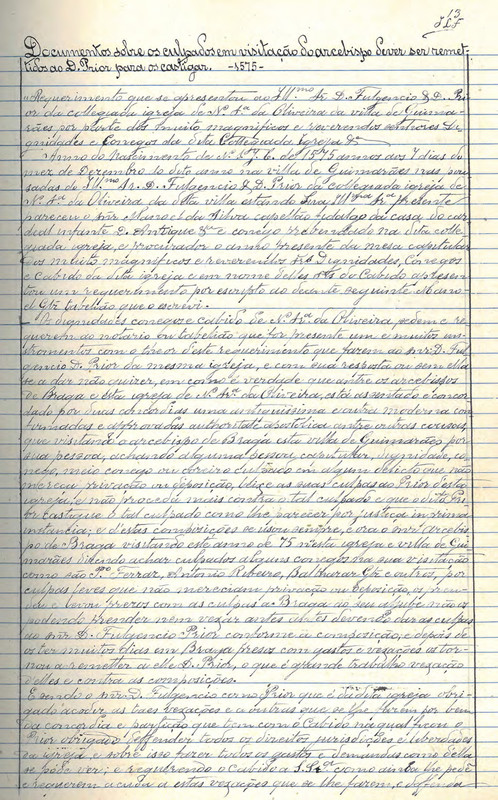 13
Documentos sobre os culpados em visitação do arcebispo dever ser remet-
tidos ao D. Prior para os castigar. -1575-
"Requerimento que se apresentou ao Ill.mo Sr. D. Fulgencio & D. Pri-
or da collegiada igreja de N.ª S.ra da Oliveira da villa de Guima-
rães por parte dos muito magnificos e reverendos senhores Di-
gnidades e Conegos da dita Collegiada Igreja &.
Anno do Nascimento de N. S. J. C. de 1575 annos aos 7 dias do
mez de Dezembro do dito anno na villa de Guimarães nas pou-
sadas do Ill.mo Sr. D. Fulgencio & D. Prior da collegiada igreja de
N.ª S.ra da Oliveira da dita villa estando Sua Ill.ma S.ria presente
pareceu o snr. Manoel da Silva capellão fidalgo da casa do car-
deal infante D. Henrique & e conego prebendado na dita colle-
giada igreja, e procurador o anno presente da mesa capitular
e os muito magnificos e reverendos srs. Dignidades, Conegos
e Cabido da dita igreja e em nome delles srs. do Cabido apresen-
tou um requerimento por escripto ao deante seguinte. Mano-
el Glz tabellião que o escrevi.
As dignidades conegos e cabido de N.ª S.ra da Oliveira pedem e re-
querem ao notario ou tabelião que for presente um e muitos ins-
tromentos com o theor d'este requerimento que fazem ao snr. D. Ful-
gencio D. Prior da mesma igreja, e com sua resposta ou sem ella
se a dar não quizer, em como é verdade que entre os arcebispos
de Braga e esta igreja de N.ª S.ra da Oliveira, está assentado e concor-
dado por duas concordias uma antiquissima e outra moderna con-
firmadas e approvadas authoritate apostolica entre outras cousas,
que visitando o arcebispo de Braga esta villa de Guimarães por
sua pessoa, achando alguma pessoa capitular, dignidade, co-
nego, meio conego ou coreiro culpado em algum delicto que não
mereça privação ou deposição, dê as suas culpas ao Prior desta
igreja, e não proceda mais contra o tal culpado e que o dito Pri-
or castigue o tal culpado como lhe parecer por justiça in prima
instancia; e d'estas composições se usou sempre, e ora o snr. Arcebis-
po de Braga visitando este anno de 75 n'esta igreja e villa de Gui-
marães dizendo achar culpados alguns conegos na sua visitação
como são P.ro Ferraz, Antonio Ribeiro, Balthazar Glz e outros, por
culpas leves que não mereciam privação ou deposição, os pren-
deu e levou prezos com as culpas a Braga ao seu aljube não os
podendo prender nem vexar antes os devendo dar as culpas
ao snr. D. Fulgencio Prior conforme a composição, e depois de
os ter muitos dias em Braga presos com gastos e vexações os tor-
nou a remetter a elle D. Prior, o que é grande trabalho vexação
d'elles e contra as composições.
E sendo o snr. D. Fulgencio como Prior que é da dita igreja obri-
gado acodir as taes vexações e a outras que se lhe fazem por bem
da concordia e partição que tem com o Cabido na qual ficou o
Prior obrigado deffender todos os direitos, jurisdicções e liberdades
da igreja, e sobre isso fazer todos os gastos e demandas como della
se póde ver; e requerendo o cabido a S. S.ria como ainda lhe pede
e requerem acuda a estas vexações que se lhe fazem, e defenda